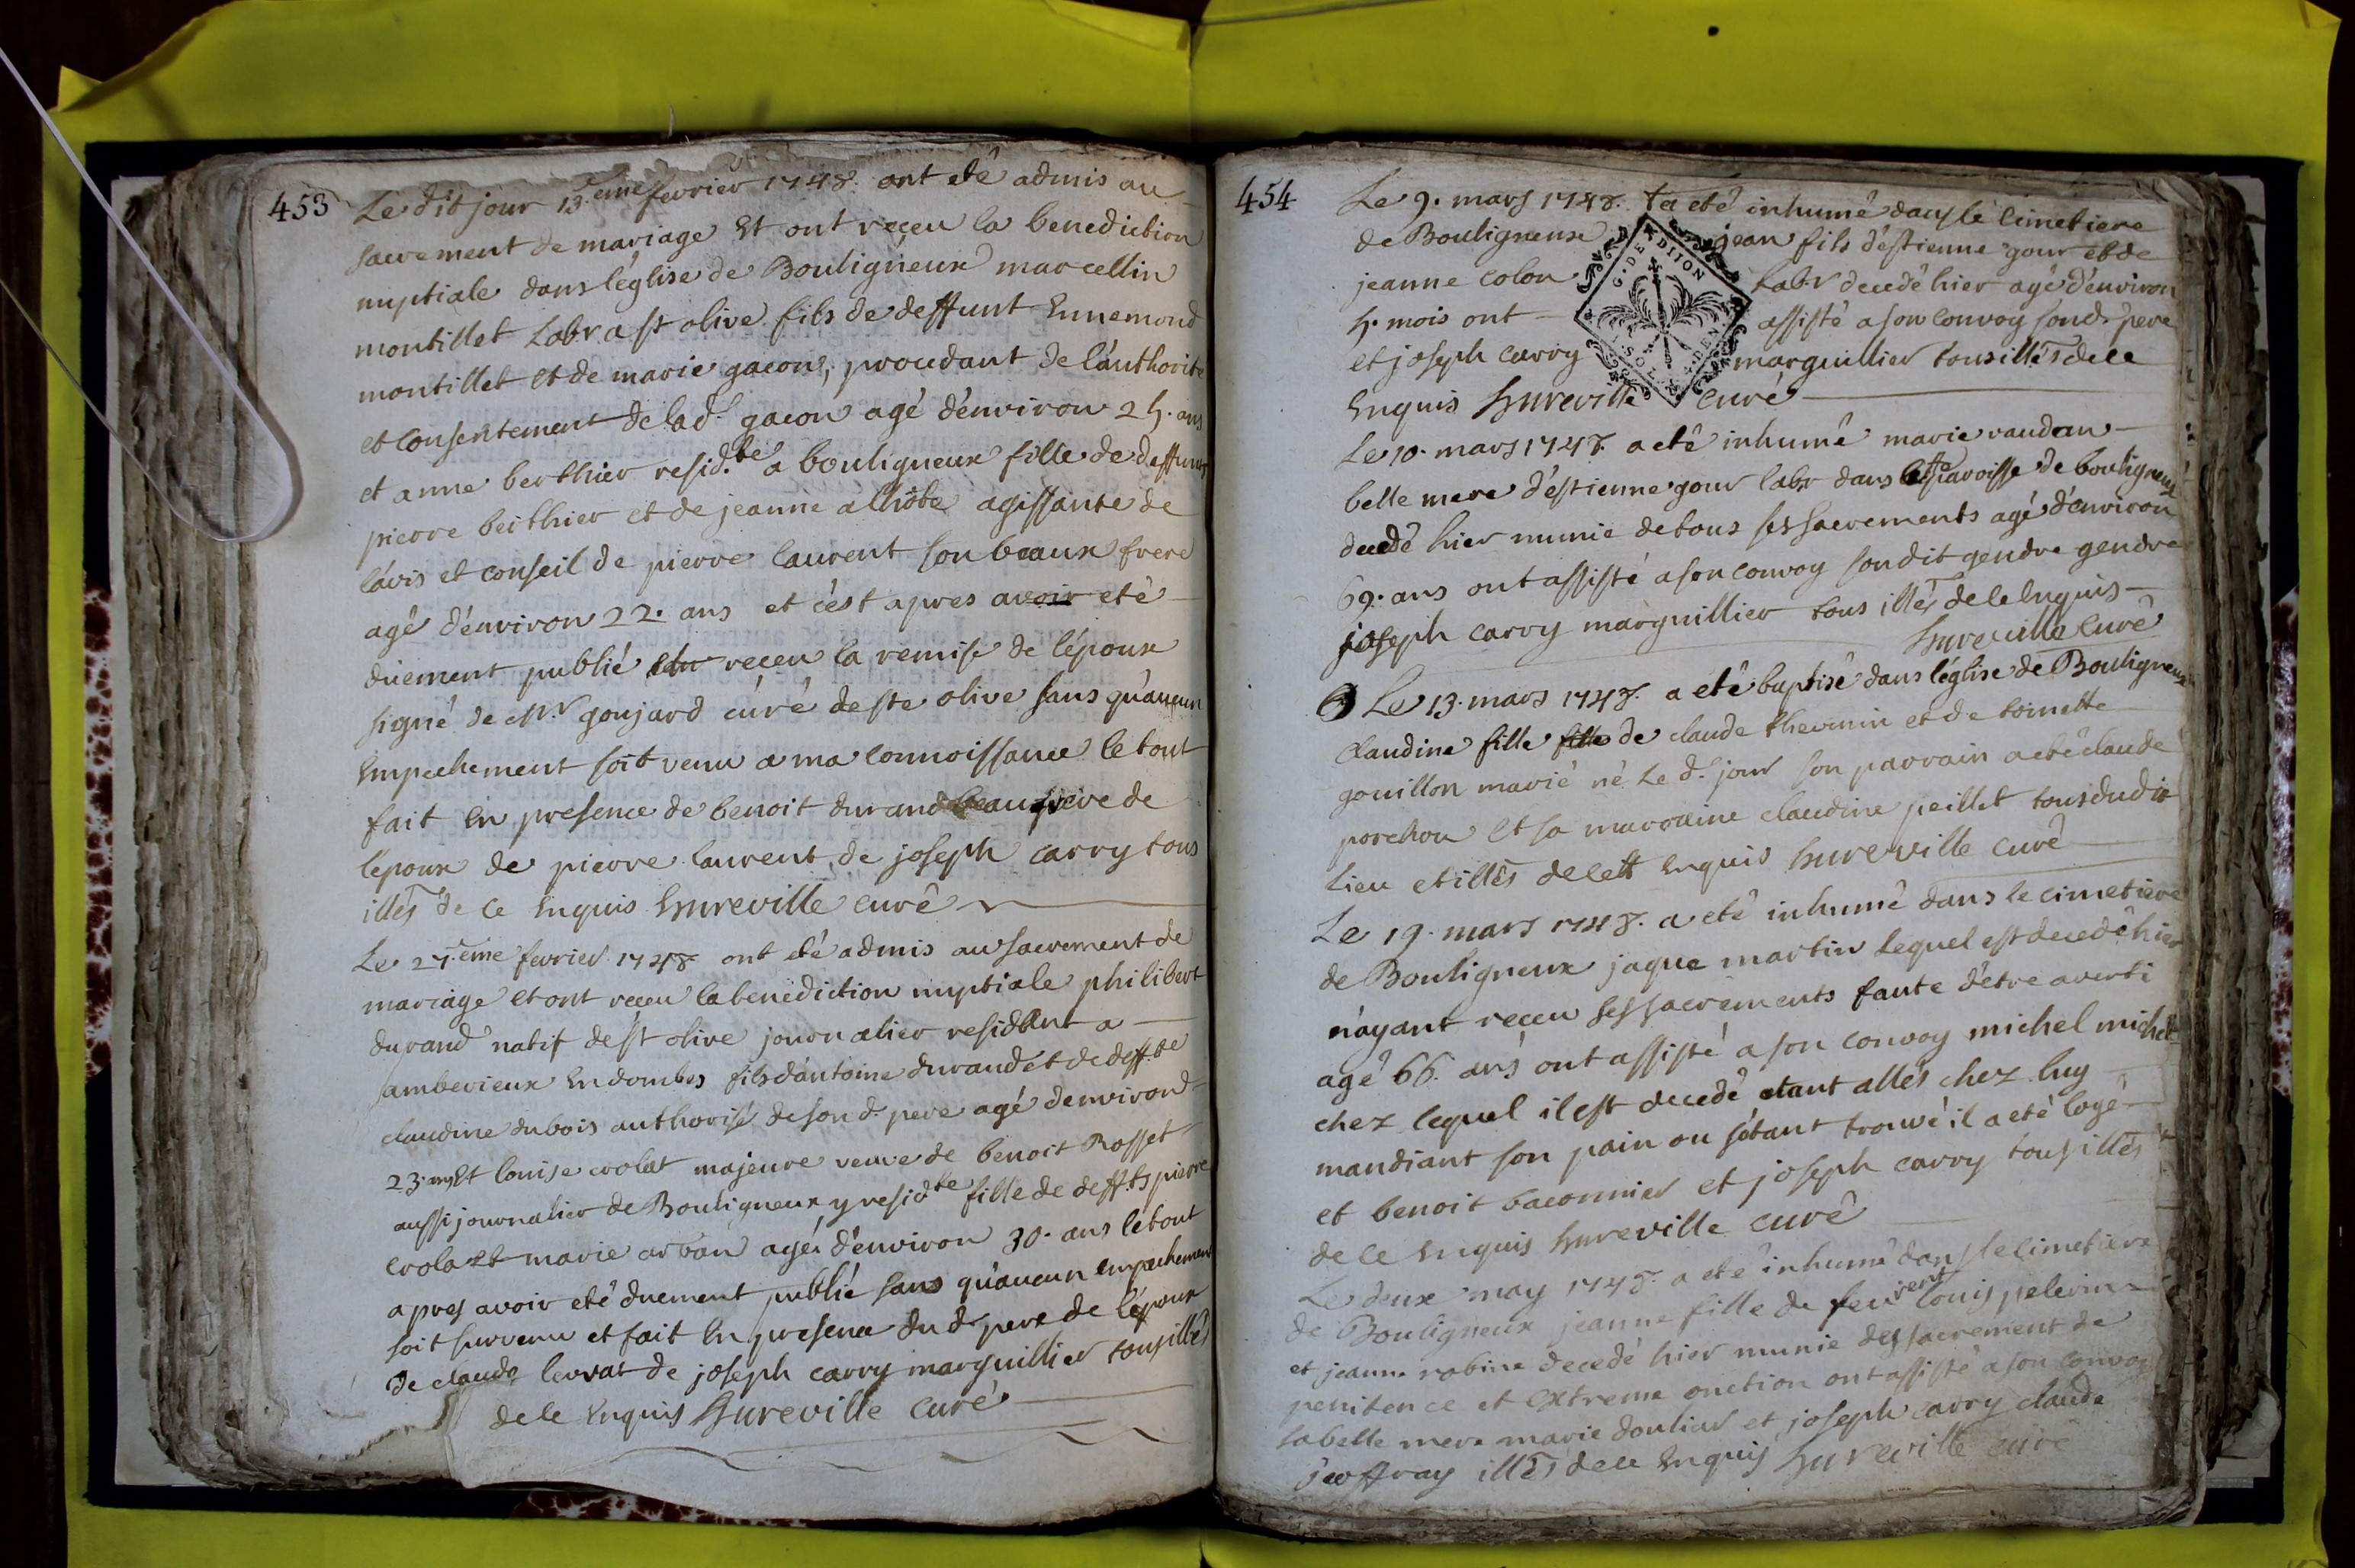 453
Le dit jour 13.eme fevrier 1748. ont eté admis au
sacrement de mariage et ont receu la benediction
nuptiale dans léglise de Bouligneux marcellin
montillet Labr a st olive fils de deffunt Ennemond
montillet et de marie gacon, procedant de lauthorité
et consentement de lad. gacon agé d'environ 25. ans
et anne berthier resid.te a bouligneux fille de deffunt
pierre berthier et de jeanne alhôte agissante de
lávis et conseil de pierre laurent son beaux frere
agé d'environ 22. ans et c'est apres avoir eté
duement publié receu la remise de lépoux
signé de Mr. goujard curé de ste olive sans qu'aucun
Empechement soit venu a ma connoissance le tout
fait en presence de benoit durand beaufrere de
lepoux de pierre laurent de joseph carry tous
illés de ce Enquis hureville curé
Le 27.eme fevrier 1748 ont eté admis au sacrement de
mariage et ont receu la benediction nuptiale philibert
durand natif de st olive journalier resident a
amberieux En dombes fils d'antoine durand et de deff.te
claudine dubois authorisé de son d. pere agé d'environ
23. ans Et louise crolat majeure veuve de benoit Rosset
aussi journalier de Bouligneux y resid.te fille de deff.ts pierre
crola et marie arban agée d'environ 30. ans le tout
apres avoir eté duement publié sans qu'aucun empechement
soit survenu et fait En presence du d. pere de lépoux
de claude levrat de joseph carry marguillier tous illés
de ce Enquis hureville curé
454
Le 9. mars 1748. a eté inhumé dans le cimetiere
de Bouligneux jean fils d'estienne gour et de
jeanne colon Labr decedé hier agé d'environ
5. mois ont assisté a son convoy son d. pere
et joseph carry marguillier tous illés de ce
Enquis hureville curé
G. DE DIJON
Le 10. mars 1748. a eté inhumé marie vaudan
belle mere d'estienne gour labr dans paroisse de bouligneux
decedé hier munie de tous ses sacrements agé d'environ
69. ans ont assisté a son convoy son dit gendre gendre
joseph carry marguillier tous illés de ce Enquis
hureville curé
Le 13. mars 1748. a eté baptisé dans léglise de Bouligneux
claudine fille fille de claude thevenin et de toinette
gouillon marié né Le d. jour son parrain a eté claude
porchon Et sa marraine claudine peillet tous dudit
Lieu et illés de ce Enquis hureville curé
Le 19. mars 1748. a eté inhumé dans le cimetiere
de Bouligneux jaque martin Lequel est decedé hier
n'ayant receu ses sacrements faute d'etre averti
agé 66. ans ont assisté a son convoy michel michel
chez lequel il est decedé etant allés chez luy
mandiant son pain ou s'étant trouvé il a eté logé
et benoit baconnier et joseph carry tous illés
de ce Enquis hureville curé
Le deux may 1748. a eté inhumé dans le cimetiere
de Bouligneux jeanne fille de louis pelerin
et jeanne robine decedé hier munie des sacrement de
penitence et extreme onction ont assisté a son convoy
sa belle mere marie douliar et joseph carry claude
jeoffray illés de ce Enquis hureville curé